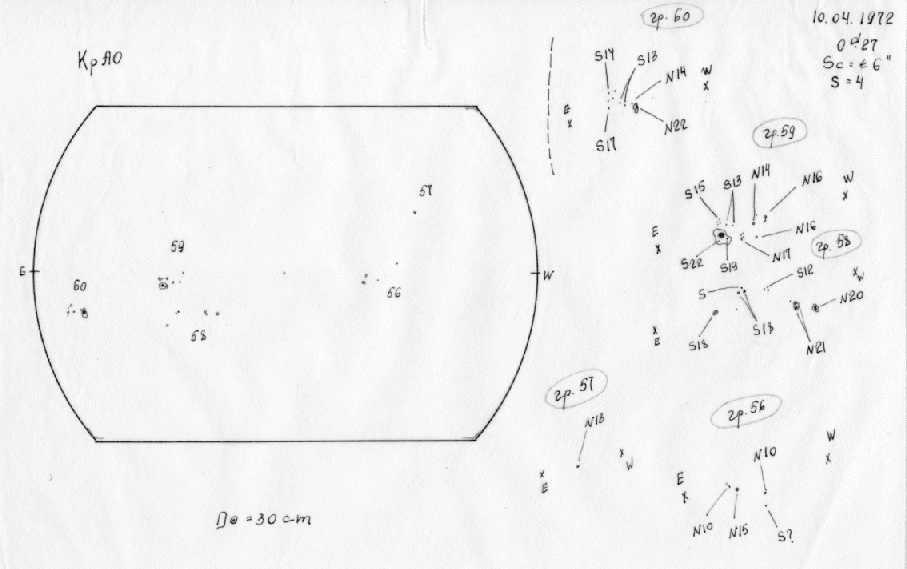 КрАО
E
W
57
59
60
56
58
D⊙ = 30 cm
10.04.1972
S = 4
гр. 60
S14
S13
N14
W
x
E
x
S17
N22
гр. 59
S15
S13
N14
N16
W
x
E
x
N16
N17
S22
S19
гр. 58
S12
x
W
S
N20
S18
S18
N21
x
E
гр. 57
N18
x
W
x
E
гр. 56
N10
W
x
E
x
N10
N15
S?